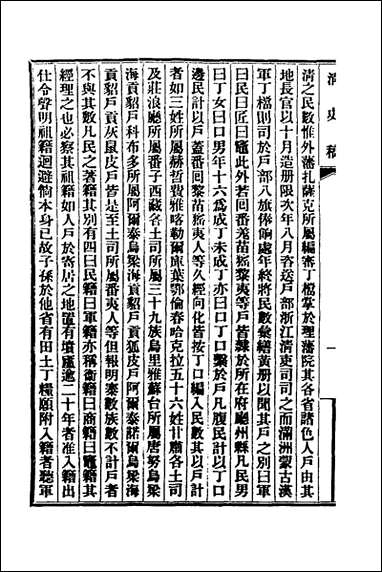 清史稿
一
清之民數惟外藩扎薩克所屬編審丁檔掌於理藩院其各省諸色人戶由其
地長官以十月造册限次年八月咨送戶部浙江清吏司司之而滿洲蒙古漢
軍丁檔則司於戶部八旗俸餉處年終將民數彙繕黃册以聞其戶之別曰軍
曰民曰匠曰竈此外若回番羌苗猺黎夷等戶皆隸於所在府廳州縣凡民男
曰丁女曰口男年十六爲成丁未成丁亦曰口丁口繫於戶凡腹民計以丁口
邊民計以戶蓋番回黎苗猺夷人等久經向化皆按丁口編入民數其以戶計
者如三姓所屬赫哲費雅喀勒爾庫葉鄂倫春哈克拉五十六姓甘肅各土司
及莊浪廳所屬番子西藏各土司所屬三十九族烏里雅蘇台所屬唐努烏梁
海貢貂戶科布多所屬阿爾泰烏梁海貢貂戶貢狐皮戶阿爾泰諾爾烏梁海
貢貂戶貢灰鼠皮戶皆是至土司所屬番夷人等但報明寨數族數不計戶者
不與其數凡民之著籍其別有四曰民籍曰軍籍亦稱衞籍曰商籍曰竈籍其
經理之也必察其祖籍如人戶於寄居之地置有墳廬逾二十年者准入籍出
仕令聲明祖籍迴避倘本身已故子孫於他省有田土丁糧願附入籍者聽軍